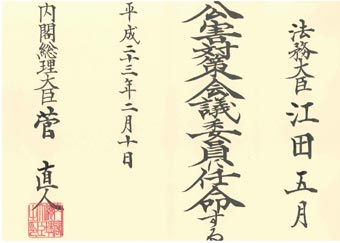 法務大臣 江田五月
公害対策会議委員に任命する
平成二十三年二月十日
内閣総理大臣 菅直人